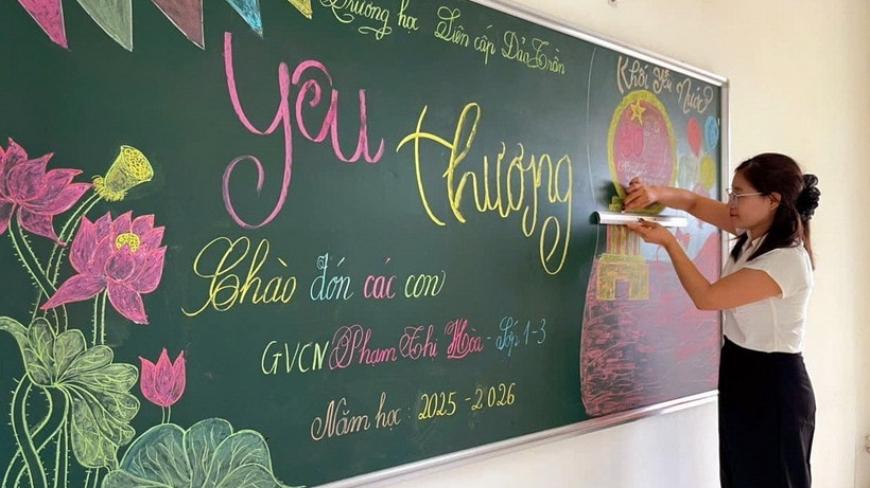 Trường học Liên cấp Đảo Trần
Yêu thương
Chào đón các con
GVCN Phạm Thị Hòa - Lớp 1-3
Năm học: 2025 - 2026
Khối Yêu Nước